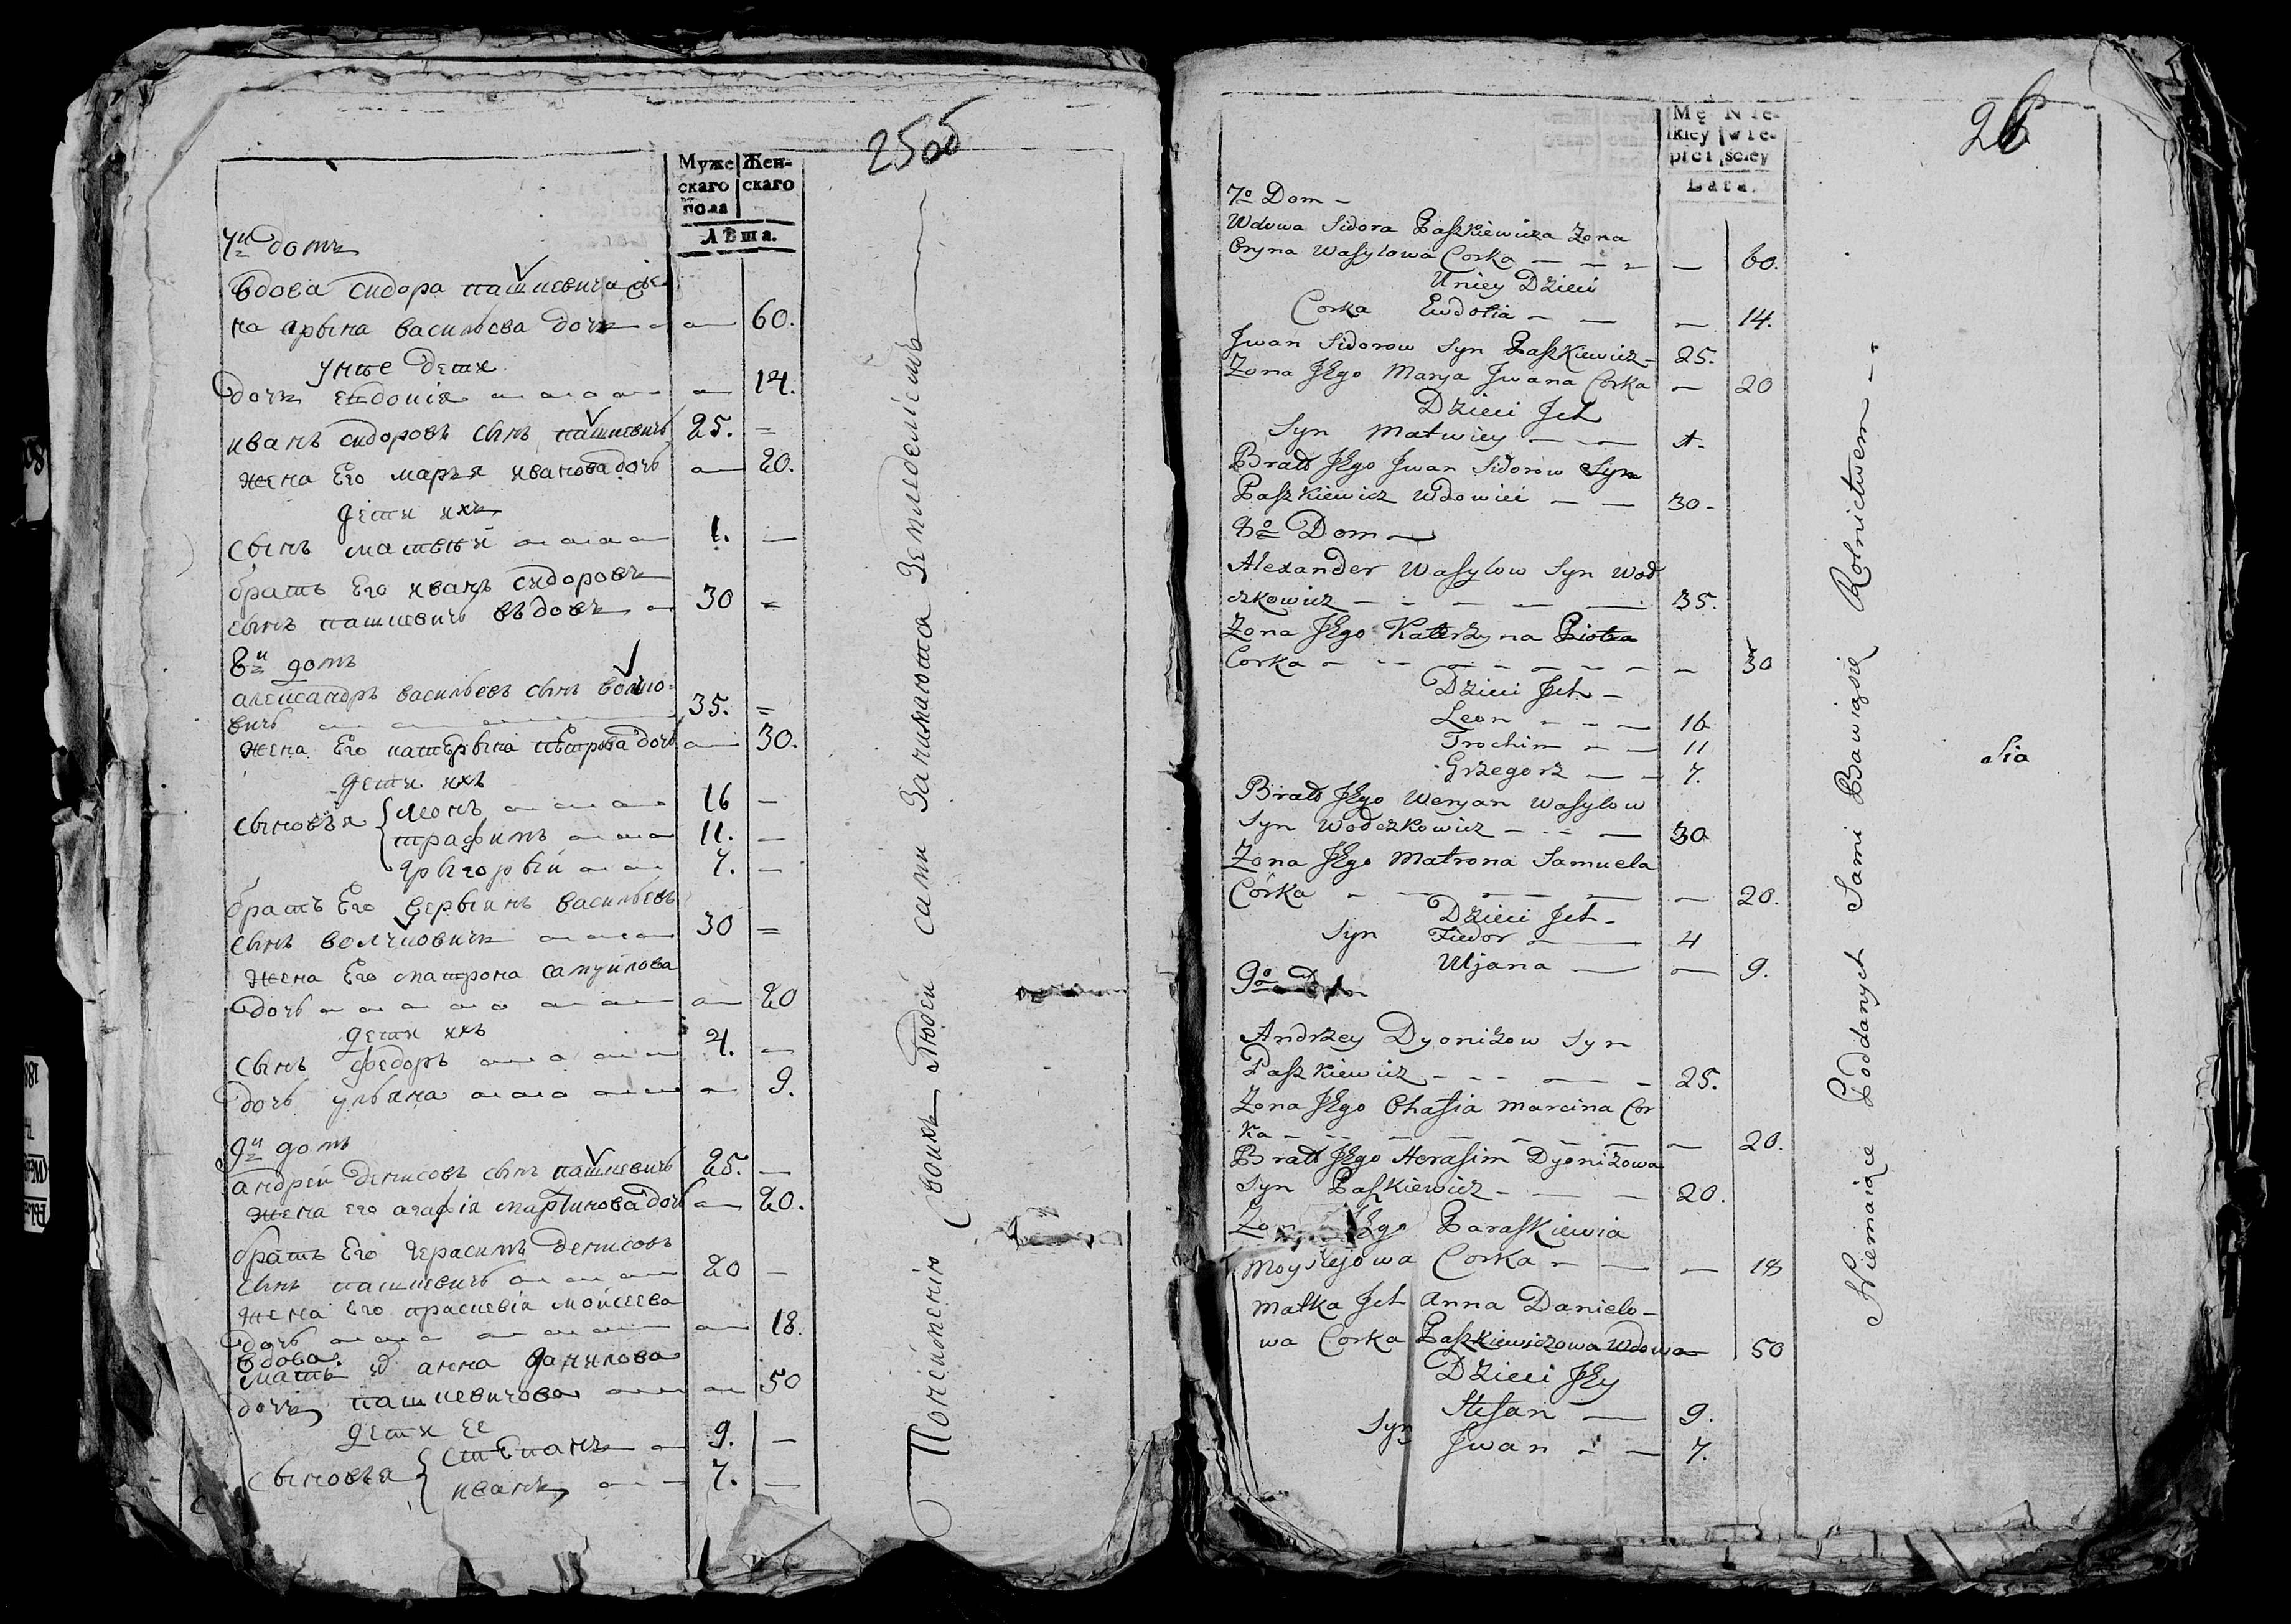 25 об
Муже Жен-
скаго скаго
пола
Лѣта.
7й домъ
вдова сидора пашкевича же
на арына васильева дочь 60.
унее дети
дочь евдокія 14.
иванъ сидоровъ сынъ пашкевичъ 25.
жена Его марья иванова дочь 20.
дети ихъ
сынъ матвѣй 1.
братъ Его иванъ сидоровъ
сынъ пашкевичъ вѣдовъ 30
8й домъ
александръ васильевъ сынъ волчко-
вичъ 35.
жена Его катерына пѣтрова дочь 30.
дети ихъ
сыновья леонъ 16
трафимъ 11.
грыгорый 7.
братъ Его верыянъ васильевъ
сынъ волчковичъ 30
жена Его матрона самуйлова
дочь 20
дети ихъ
сынъ федоръ 4.
дочь ульяна 9.
9й домъ
андрей денисовъ сынъ пашкевичъ 25.
жена его агафія мартинова дочь 20.
братъ Его герасимъ денисовъ
сынъ пашкевичъ 20
жена Его праскевія мойсеева
дочь 18.
вдова
мать анна данилова
дочь пашкевичова 50
дети ее
сыновья стѣпанъ 9.
иванъ 7.
Поисключенію своихъ людей сами занимаются земледелiемъ
26
Mę Nie-
skiey wie-
płci ściey
Lata.
7o Dom -
Wdowa Sidora Paszkiewicza Zona
Oryna Wasylowa Corka 60.
Uniey Dzieci
Corka Ewdokia 14.
Jwan Sidorow Syn Paszkiewicz 25.
Zona JEgo Marya Jwana Corka 20
Dzieci Jch
Syn Matwiey 1.
Brat JEgo Jwan Sidorow Syn
Paszkiewicz Wdowiec 30.
8o Dom
Alexander Wasylow Syn Wod
czkowicz 35.
Zona JEgo Katerzyna Piotra
Corka 30
Dzieci Jch
Leon 16
Trochim 11
Grzegorz 7.
Brat JEgo Weryan Wasylow
Syn Wodczkowicz 30
Zona JEgo Matrona Samuela
Córka 20.
Dzieci Jch
Syn Fiedor 4
Uljana 9.
9o Dom
Andrzey Dyonizow Syn
Paszkiewicz 25.
Zona JEgo Ohafia Marcina Cor
ka 20.
Brat JEgo Herasim Dyonizowa
Syn Paszkiewicz 20.
Zona JEgo Paraskiewia
Moyzejowa Corka 18
Matka Jch Anna Danielo-
wa Corka Paszkiewiczowa Wdowa 50
Dzieci JEy
Stefan 9.
Syn Jwan 7.
Niemaiące Poddanych Sami Bawiąsię Rolnictwem
sia